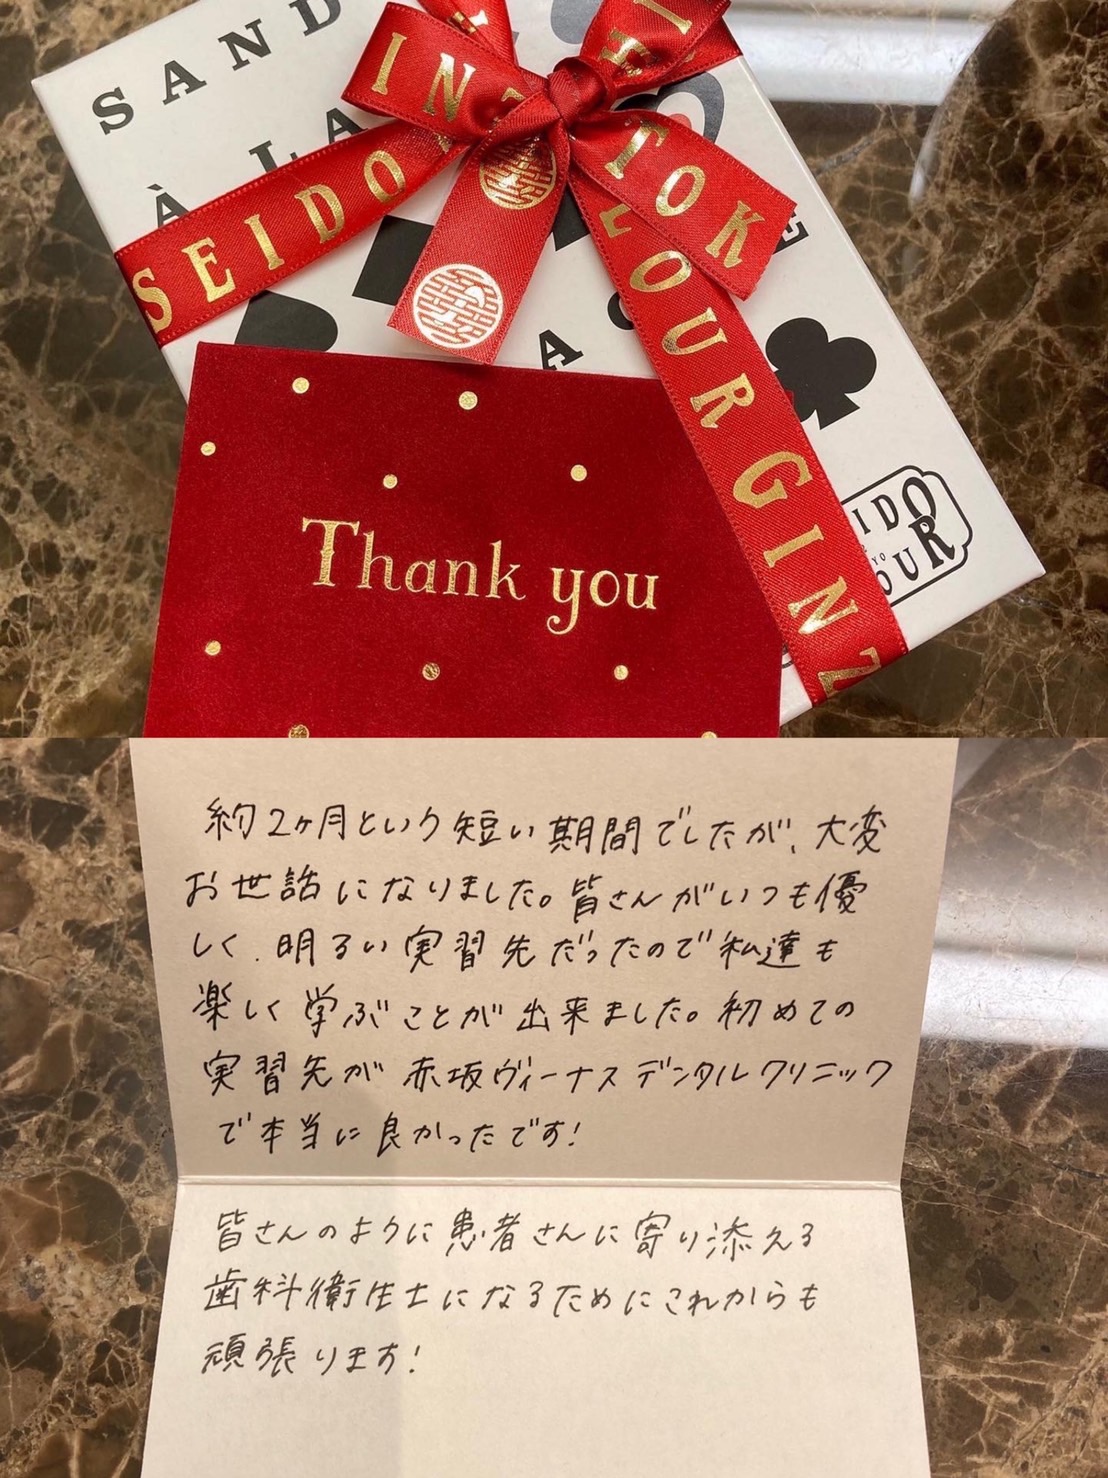 SAND
À LA
SEIDO
IN
TOK
LOUR GINZ
A
E
IDO
YO
OUR
Thank you
約2ヶ月という短い期間でしたが、大変
お世話になりました。皆さんがいつも優
しく、明るい実習先だったので私達も
楽しく学ぶことが出来ました。初めての
実習先が赤坂ヴィーナスデンタルクリニック
で本当に良かったです!
皆さんのように患者さんに寄り添える
歯科衛生士になるためにこれからも
頑張ります!